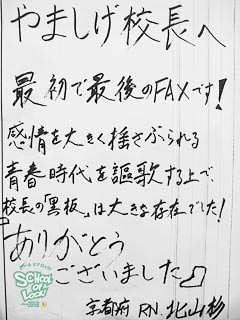 やましげ校長へ
最初で最後のFAXです!
感情を大きく揺さぶられる
青春時代を謳歌する上で、
校長の「黒板」は大きな存在でした!
ありがとう
ございました
SCHOOL OF LOCK!
京都府 RN.北山杉